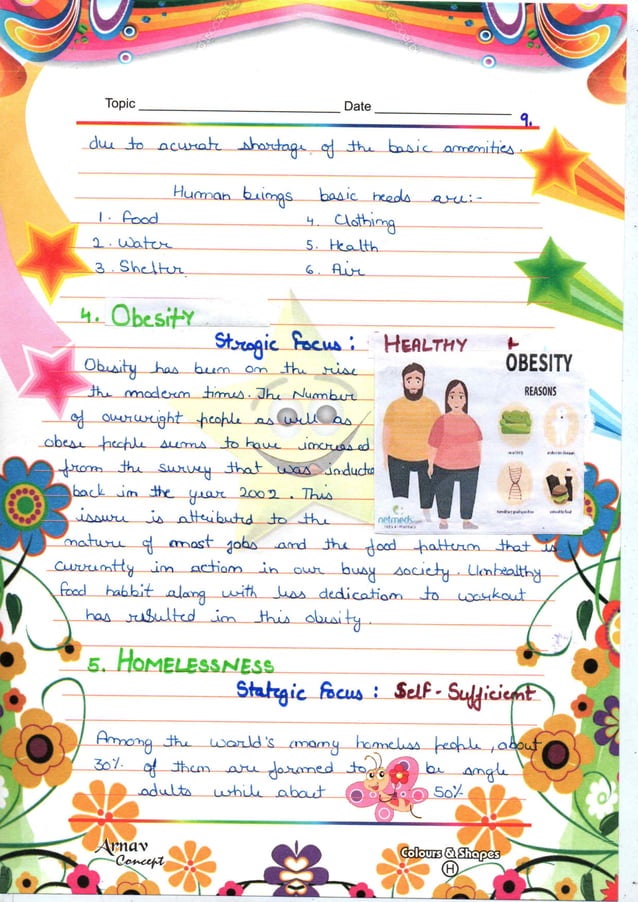 Topic Date
9.
due to acurate shortage of the basic amenities.
Human beings basic needs are:-
1. Food 4. Clothing
2. Water 5. Health
3. Shelter 6. Air
4. Obesity
Stragic Focus : HEALTHY
OBESITY
REASONS
Obesity has been on the rise
the modern times. The Number
of overweight people as well as
obese people seems to have increased
from the survey that was inducte
back in the year 2002. This
issure is attributed to the
netmeds.com
nature of most jobs and the food pattern that is
currently in action in our busy society. Unhealthy
food habbit along with less dedication to workout
has resulted in this obesity.
5. HOMELESSNESS
Stategic Focus : Self - Sufficient
Among the world's many homeless people, about
30% of them are formed to be single
adults while about 50%
Arnav
Concept
Colours & Shapes
H